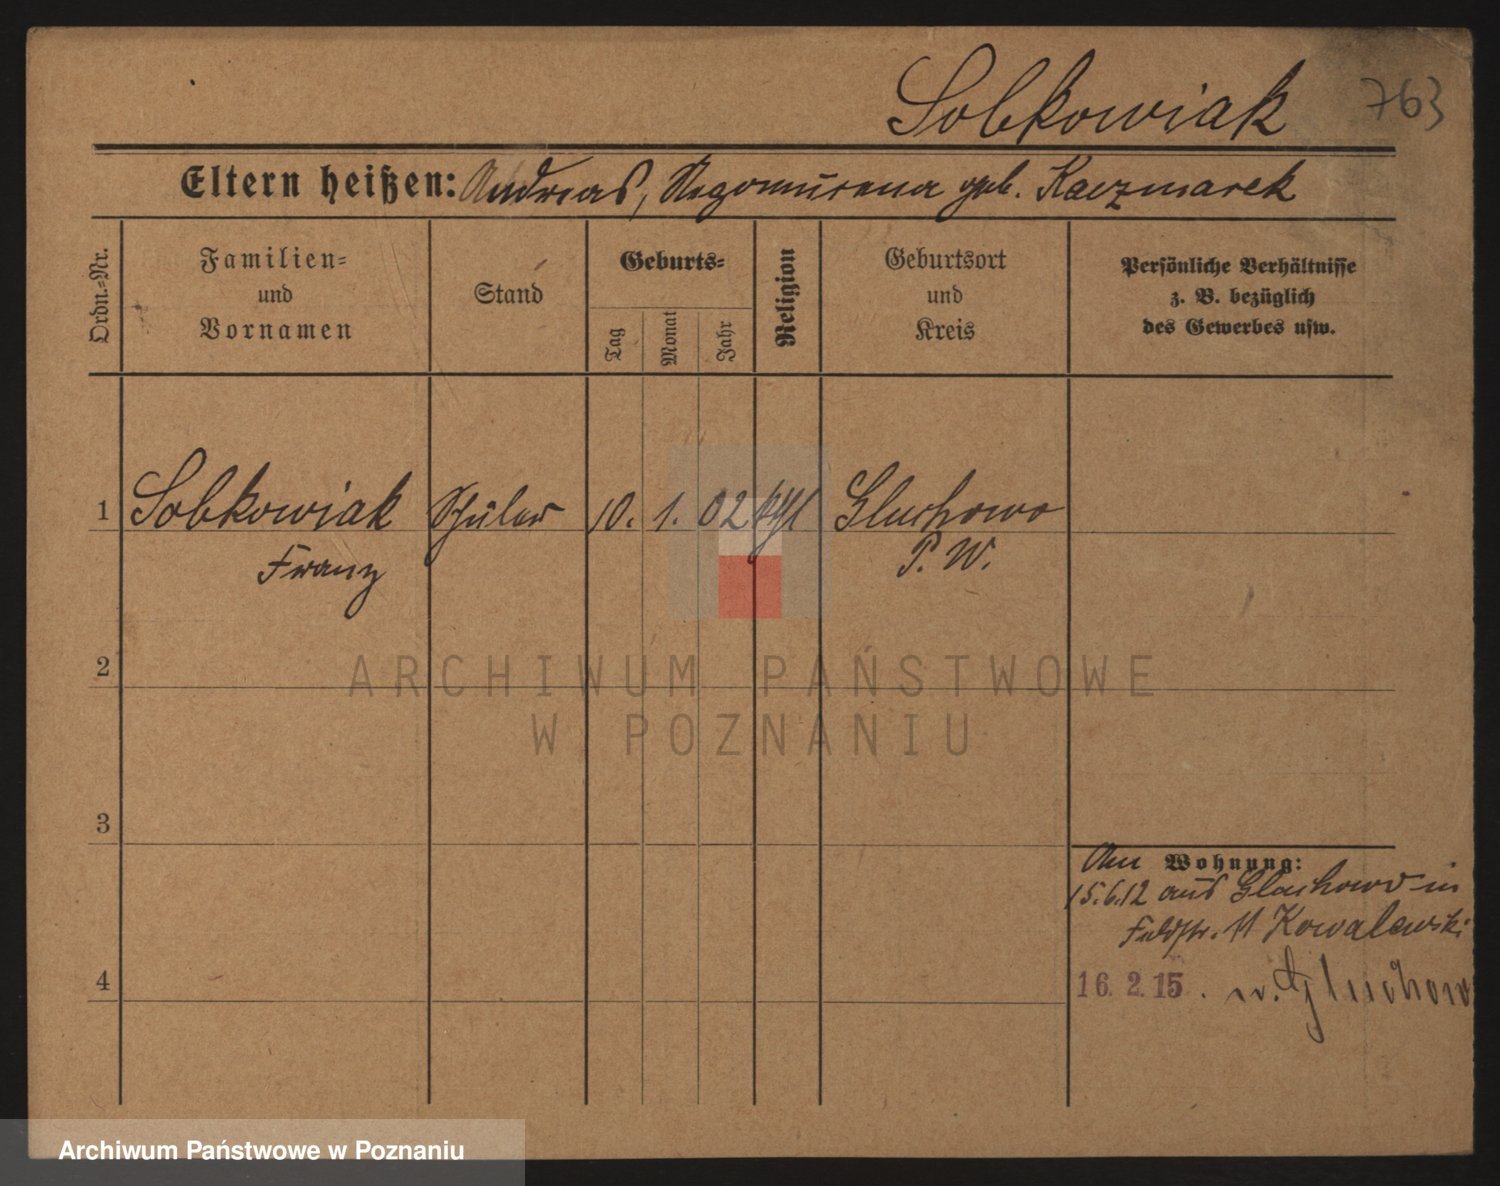 Sobkowiak 763
Eltern heißen: Andreas, geb. Kaczmarek
Ordn.-Nr.
Familien-
und
Vornamen
Stand
Geburts-
Tag
Monat
Jahr
Religion
Geburtsort
und
Kreis
Persönliche Verhältnisse
z. B. bezüglich
des Gewerbes usw.
1 Sobkowiak Schüler 10. 1. 02 kth Gluchowo
Franz P. W.
ARCHIWUM PAŃSTWOWE
W POZNANIU
2
3
Am Wohnung:
15.6.12 aus Gluchowo in
Feldstr. 11 Kowalewski
4
16. 2. 15. n. Gluchowo
Archiwum Państwowe w Poznaniu